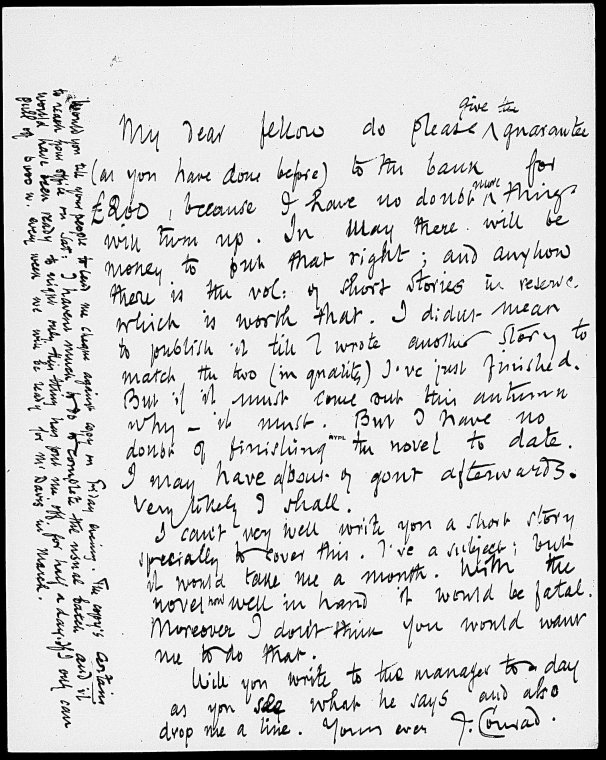 give the
My dear fellow do please ^ guarantee
(as you have done before) to the bank for
£200, because I have no doubt more ^ things
will turn up. In May there will be
money to put that right; and anyhow
there is the vol: of short stories in reserve.
which is worth that. I didn't mean
to publish it till I wrote another story to
match the two (in quality) I've just finished.
But if it must come out this autumn
why — it must. But I have no
doubt of finishing the novel to date.
I may have a bout of gout afterwards.
Very likely I shall.
I can't very well write you a short story
specially to cover this. I've a subject; but
it would take me a month. With the
novel now well in hand it would be fatal.
Moreover I don't think you would want
me to do that.
Will you write to the manager to-day
as you see what he says and also
drop me a line. Yours ever J. Conrad.
Would you tell your people to send me cheque against copy on Friday evening. The copy's certain
to reach your office on Sat: I haven't much to do to complete the usual batch and it
would have been ready to night only this thing has put me off for half a day. If I only can
pull off every week we will be ready for Mr Davis in March.